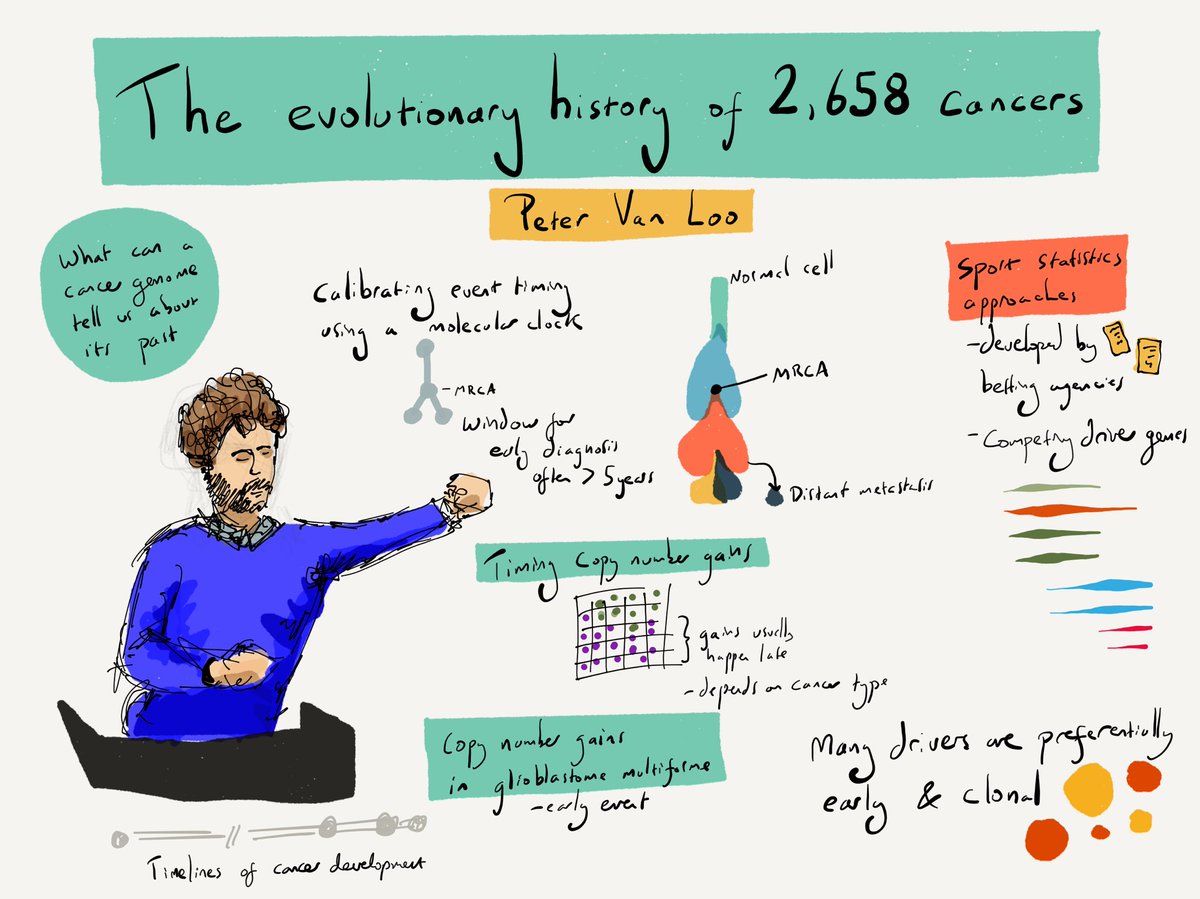 The evolutionary history of 2,658 cancers
Peter Van Loo
What can a
cancer genome
tell us about
its past
Calibrating event timing
using a molecular clock
MRCA
Window for
early diagnosis
often > 5 years
Normal cell
MRCA
Distant metastasis
Sport statistics
approaches
- developed by
betting agencies
- Competing driver genes
Timing copy number gains
gains usually
happen late
- depends on cancer type
Copy number gains
in glioblastome multiforme
- early event
Many drivers are preferentially
early & clonal
Timelines of cancer development